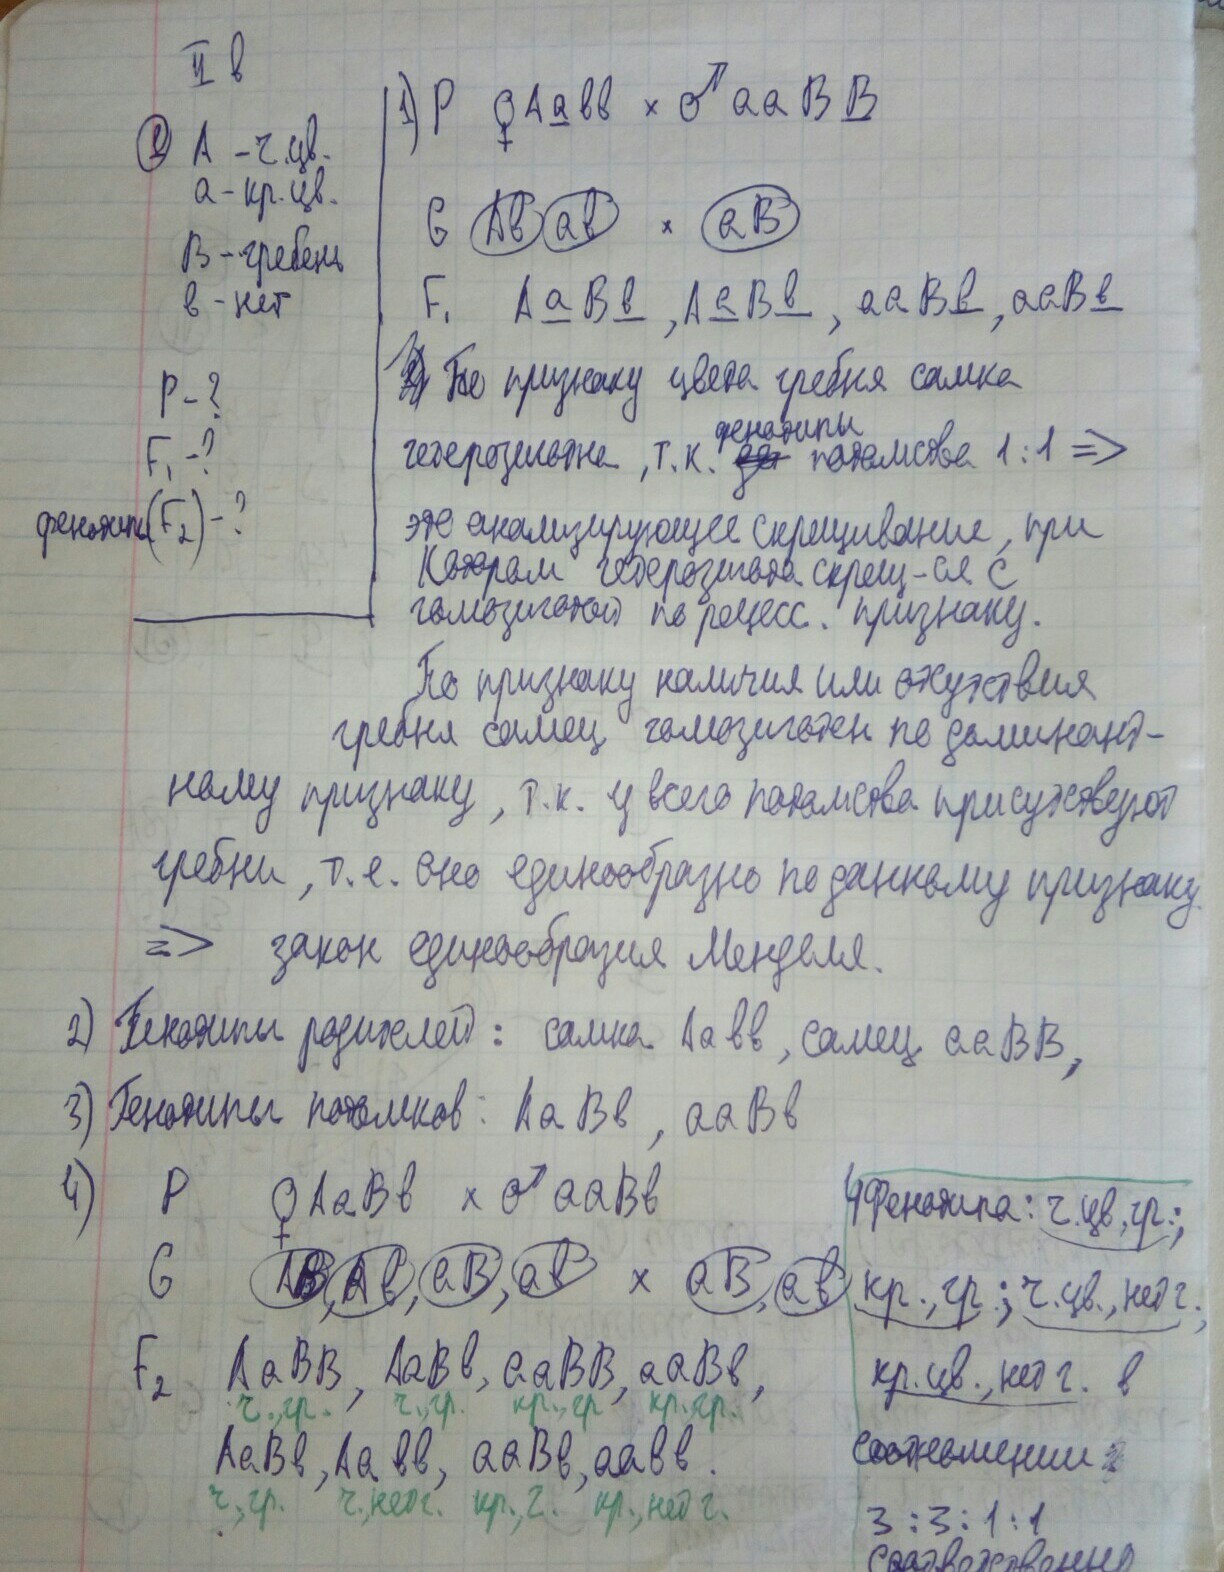 II в
① А - ч.цв.
а - кр.цв.
В - гребень
в - нет
Р - ?
F₁ - ?
фенотипы (F₂) - ?
1) Р ♀ Аавв × ♂ ааВВ
G Ав ав × аВ
F₁ АаВв, АаВв, ааВв, ааВв
По признаку цвета гребня самка
гетерозиготна, т.к. фенотипы потомства 1:1 =>
это анализирующее скрещивание, при
котором гетерозигота скрещ-ся с
гомозиготой по рецесс. признаку.
По признаку наличия или отсутствия
гребня самец гомозиготен по доминант-
ному признаку, т.к. у всего потомства присутствуют
гребни, т.е. оно единообразно по данному признаку
=> закон единообразия Менделя.
2) Генотипы родителей: самка Аавв, самец ааВВ,
3) Генотипы потомков: АаВв, ааВв
4) Р ♀ АаВв × ♂ ааВв
G АВ, Ав, аВ, ав × аВ, ав
F₂ АаВВ, АаВв, ааВВ, ааВв,
ч.,гр. ч.,гр. кр.,гр кр.гр.
АаВв, Аавв, ааВв, аавв.
ч.,гр. ч.,нет г. кр.,г. кр.,нет г.
4 фенотипа: ч.цв,гр.;
кр.,гр.; ч.цв.,нет г.,
кр.цв.,нет г. в
соотношении
3:3:1:1
соответственно